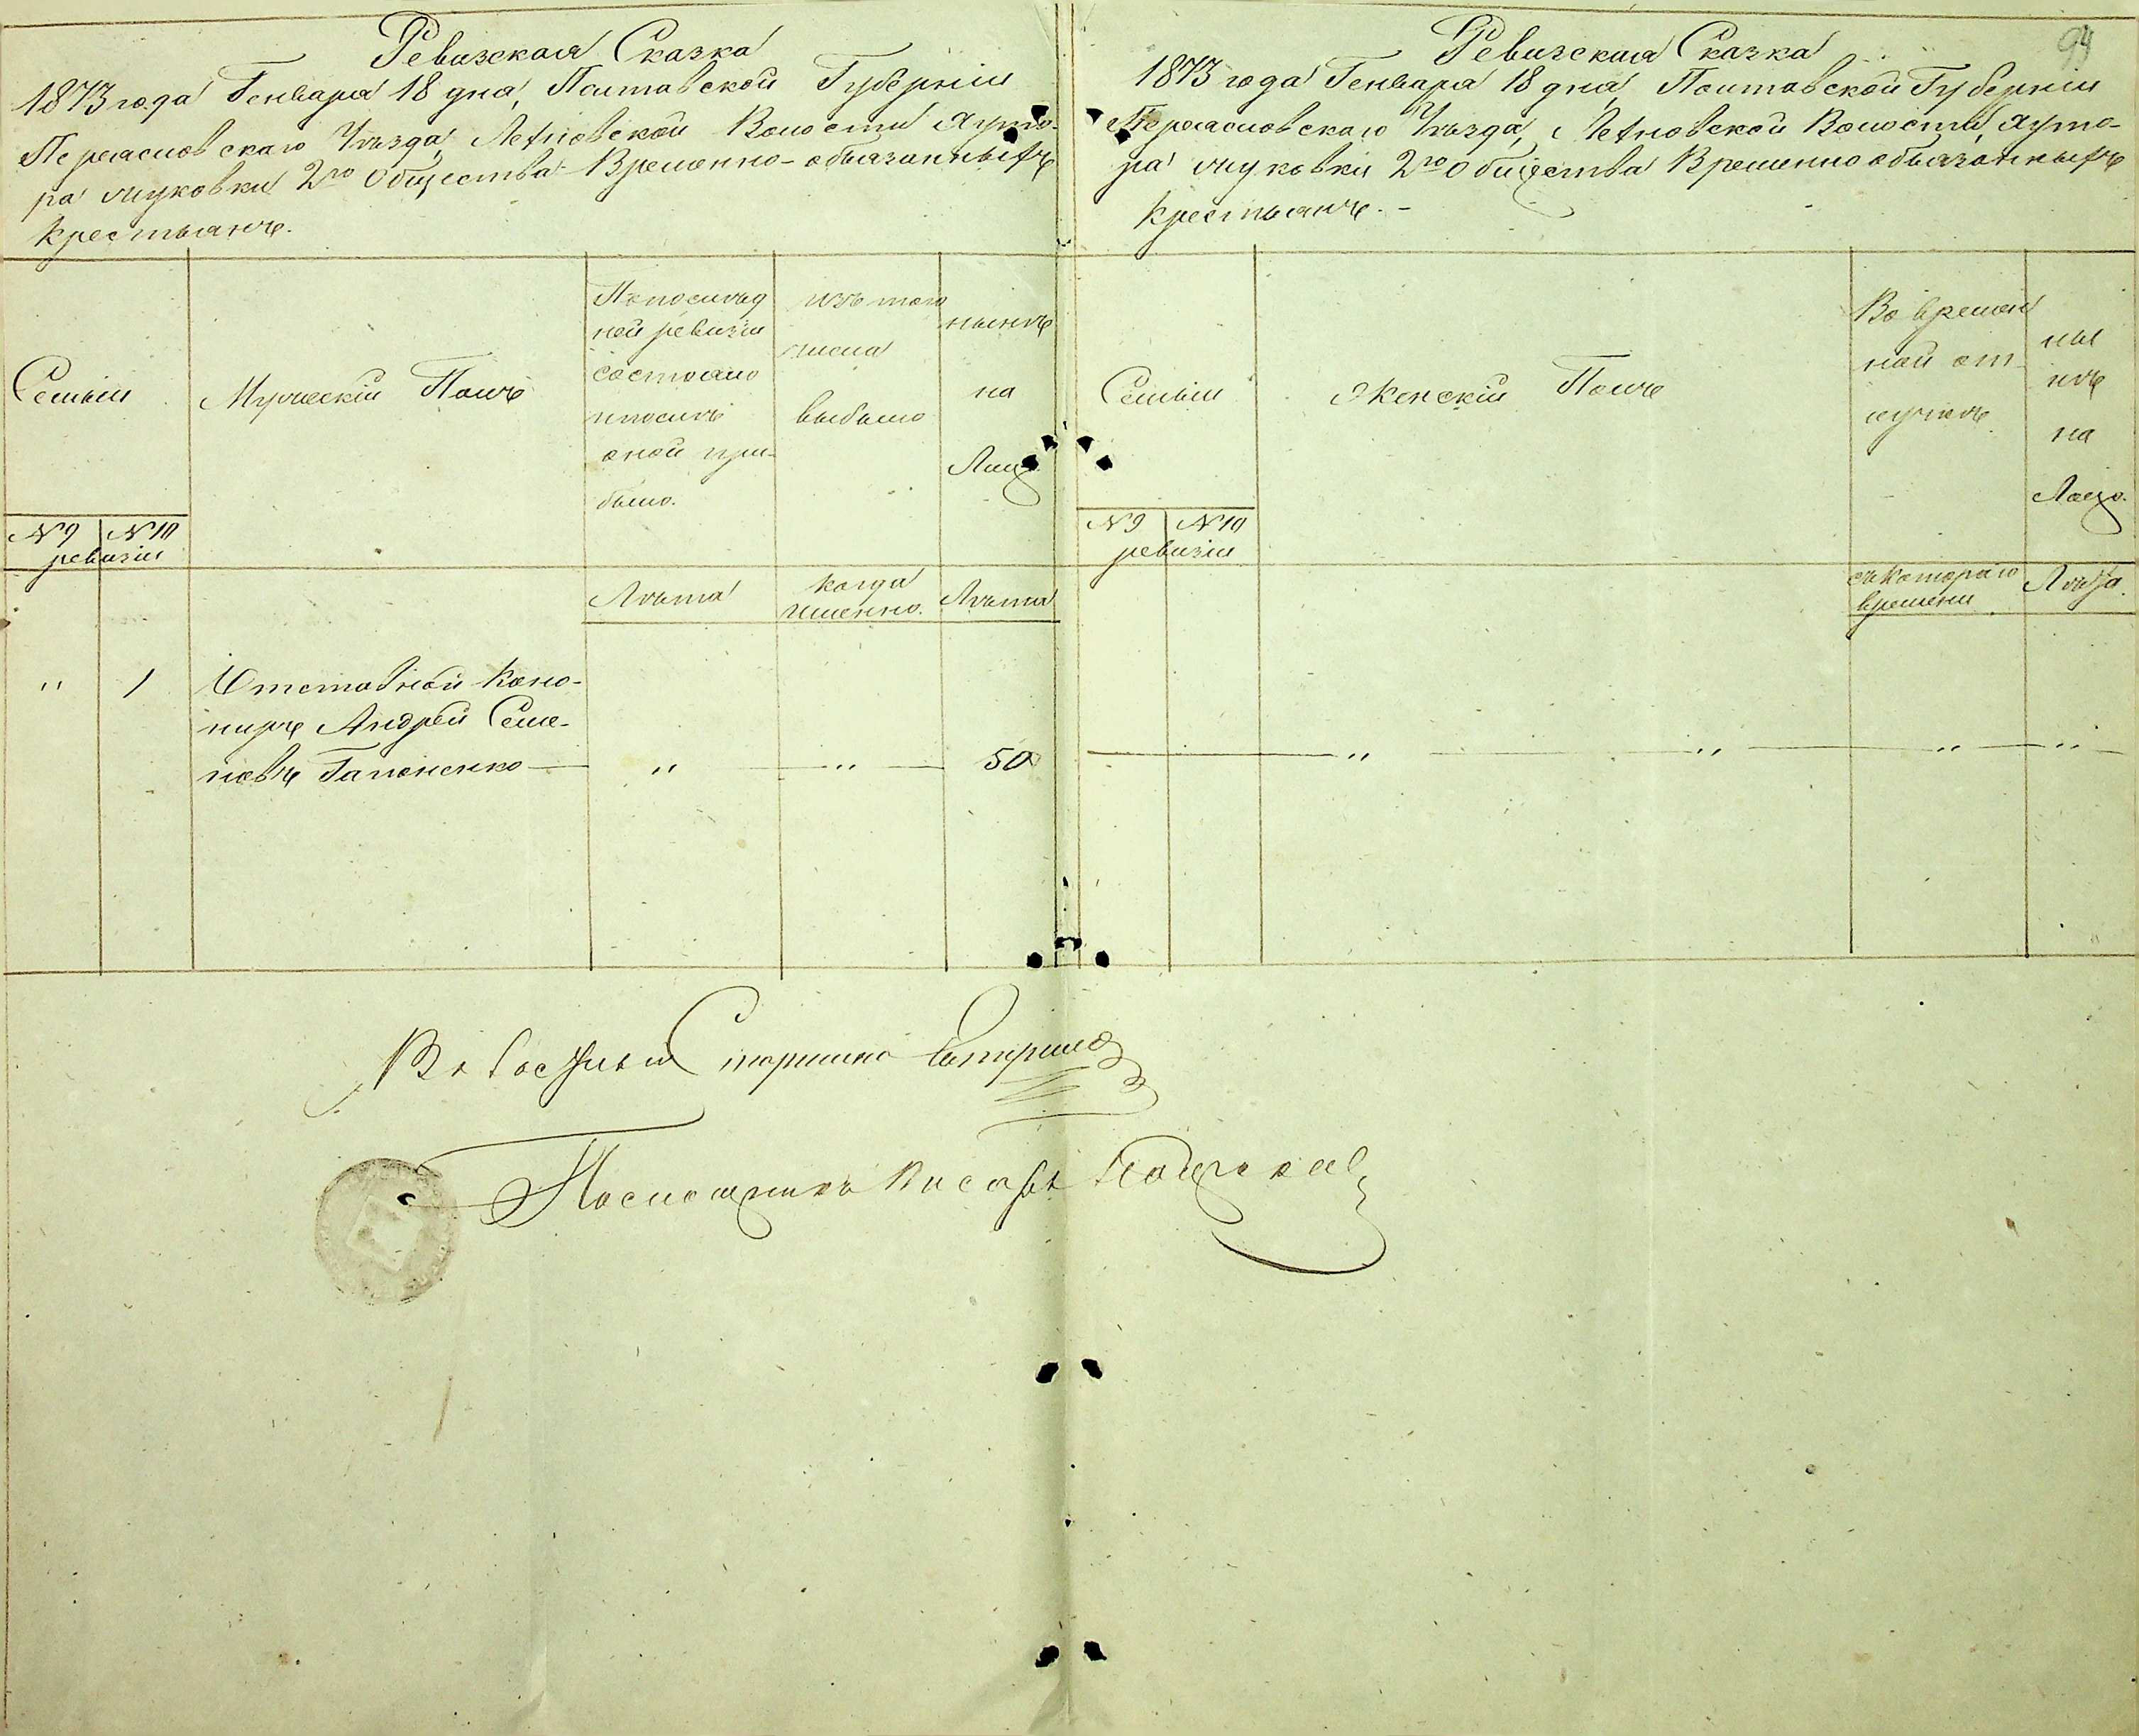 Ревизская Сказка
1873 года Генваря 18 дня, Полтавской Губерніи
Переяславскаго Уѣзда,
Волости Хуто-
ра 2го Общества Временно-обязанныхъ
Крестьянъ.
Семьи
Мужескій Полъ
По послѣд
ней ревизіи
состояло
и послѣ
оной при-
было.
изъ того
числа
выбыло
нынѣ
на
Лицо.
№ 9 № 10
ревизіи
Лѣта
когда
именно.
Лѣта
" 1 Отставной Кано-
ниръ Андрей Семе-
новъ Гапоненко — " — " — 50
94
Ревизская Сказка
1873 года Генваря 18 дня, Полтавской Губерніи
Переяславскаго Уѣзда, Волости, Хуто-
ра 2го Общества Временно обязанныхъ
Крестьянъ. -
Семьи
Женскій Полъ
Во времен
ной от-
лучкѣ
ны
нѣ
на
Лицо.
№ 9 № 10
ревизіи
съ котораго
времени
Лѣта.
— " — " — " — " —
Волостный Старшина
Писарь